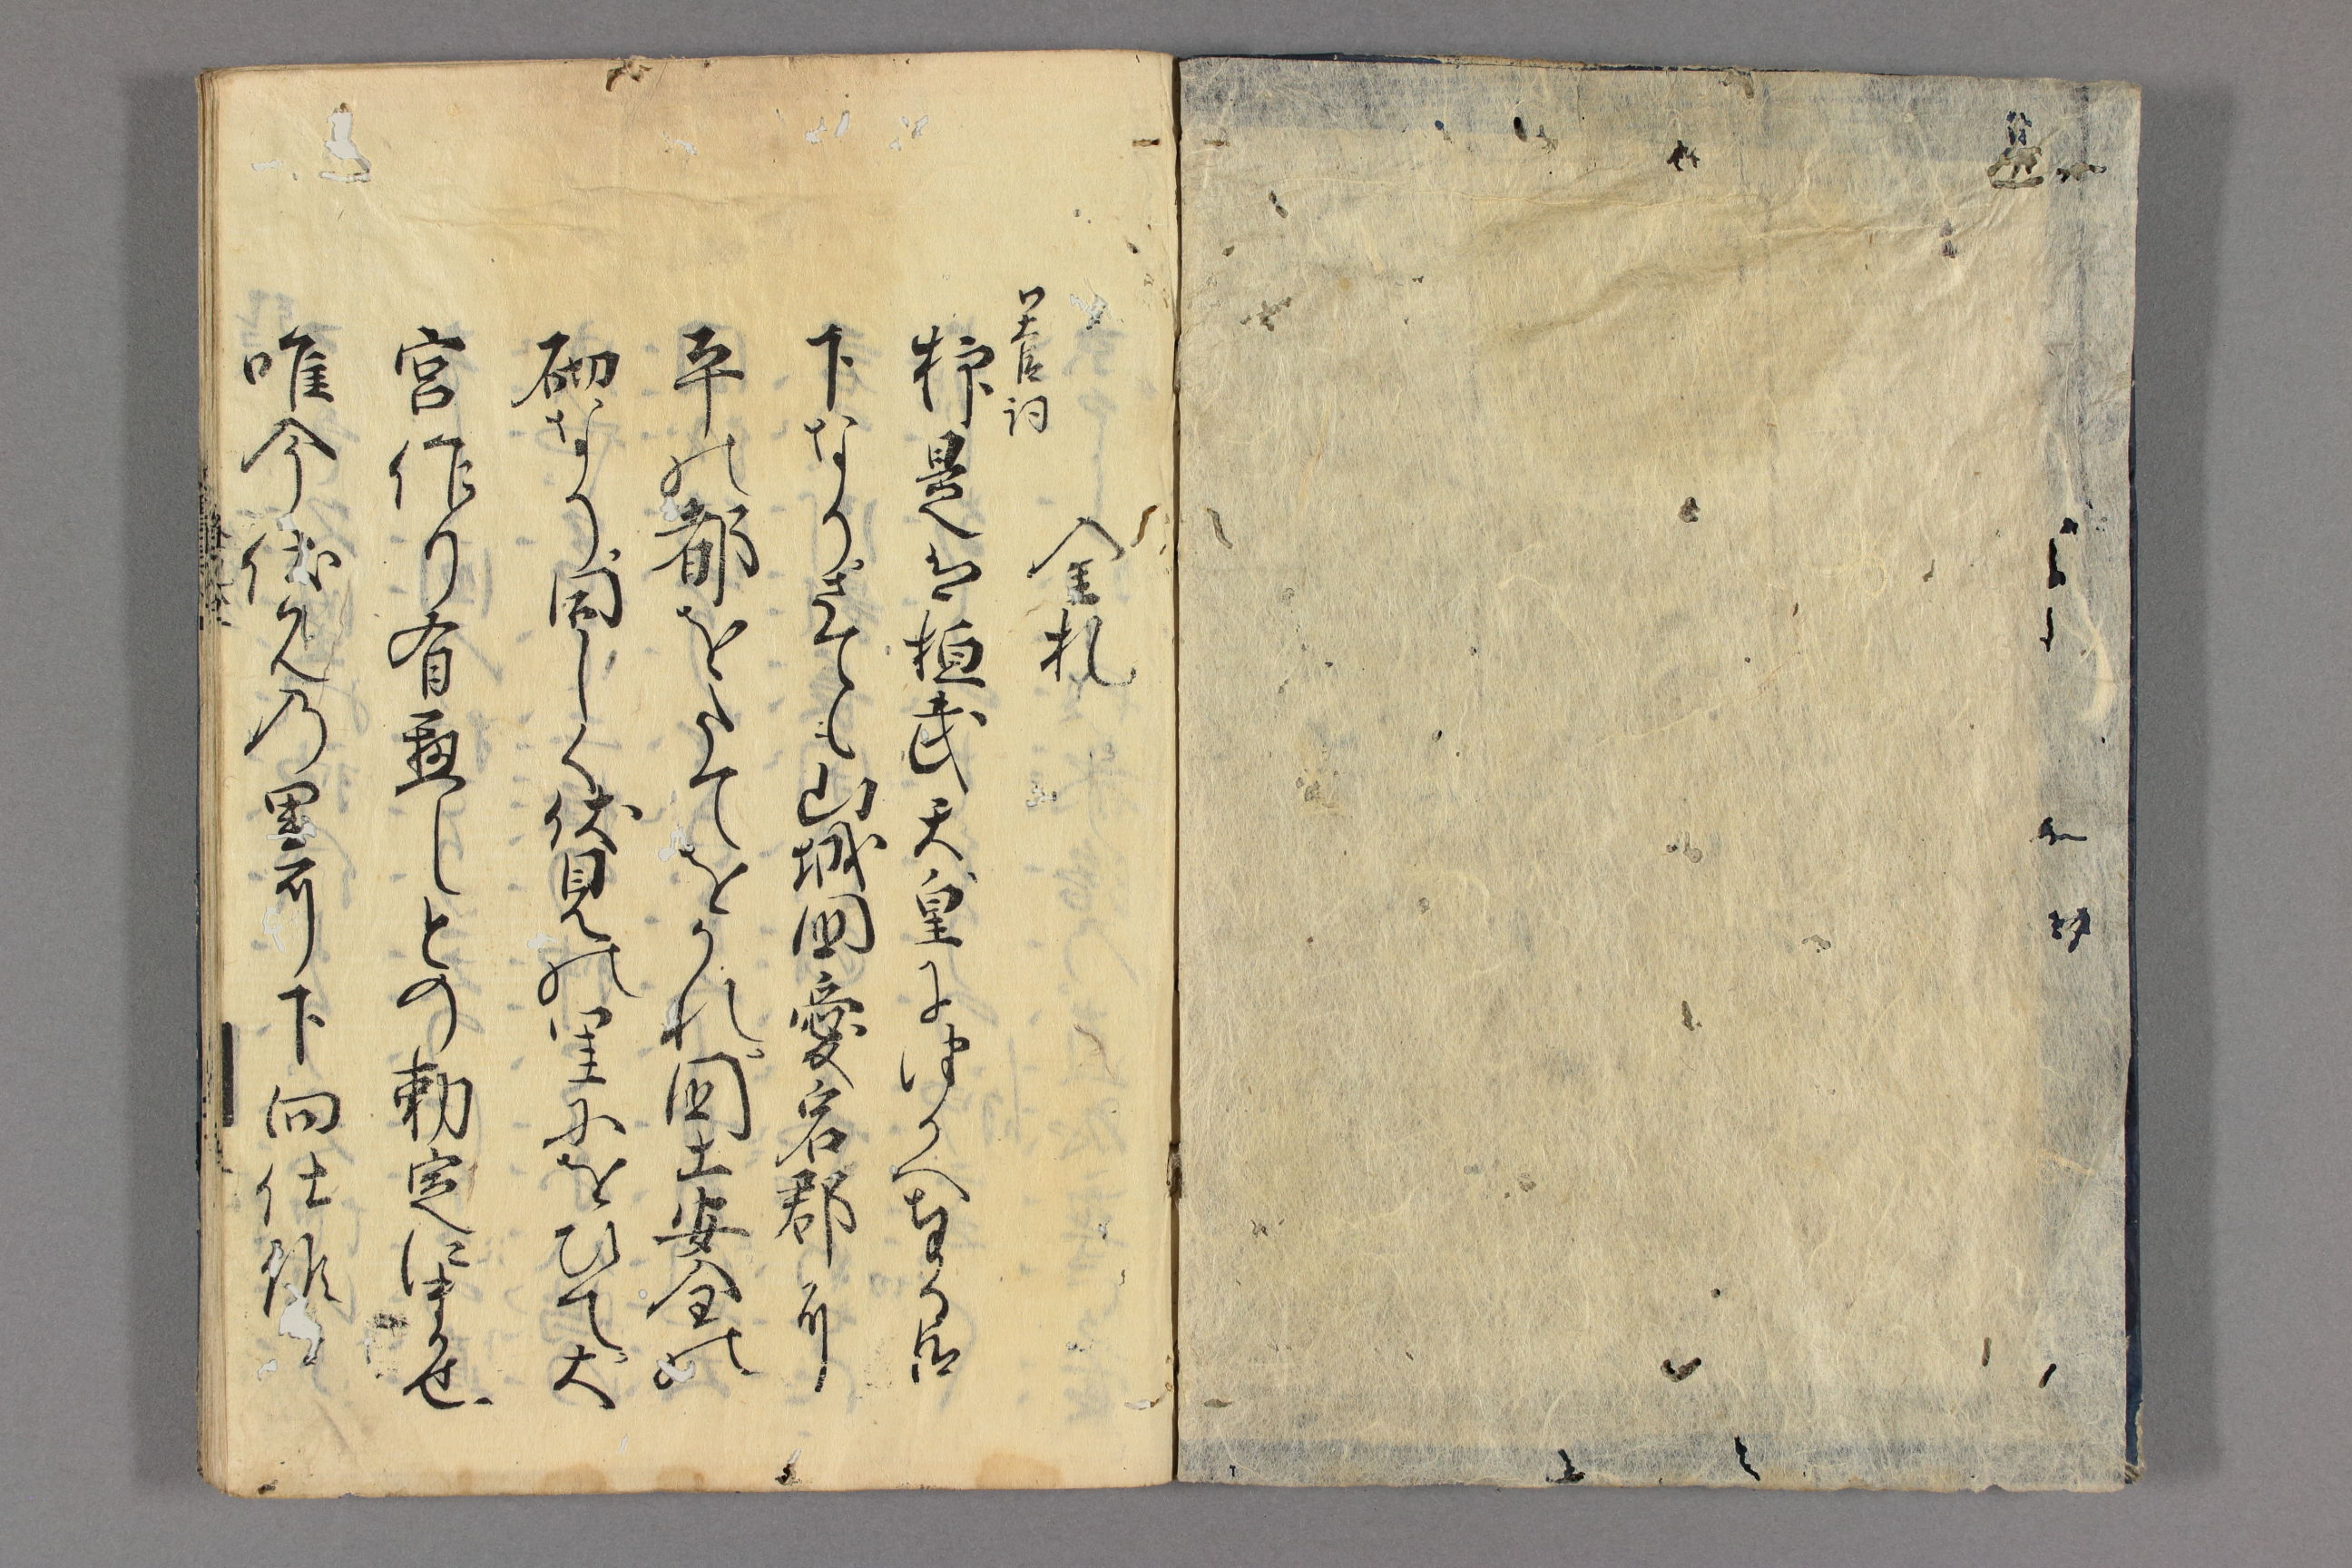 金札
詞
抑是は桓武天皇につかへ奉る臣
下なり扨も山城国愛宕郡に
平の都をたてをかれ国土安全の
砌なり同しく伏見の里にをひて大
宮作り有へしとの勅定にまかせ
唯今伏見の里に下向仕候